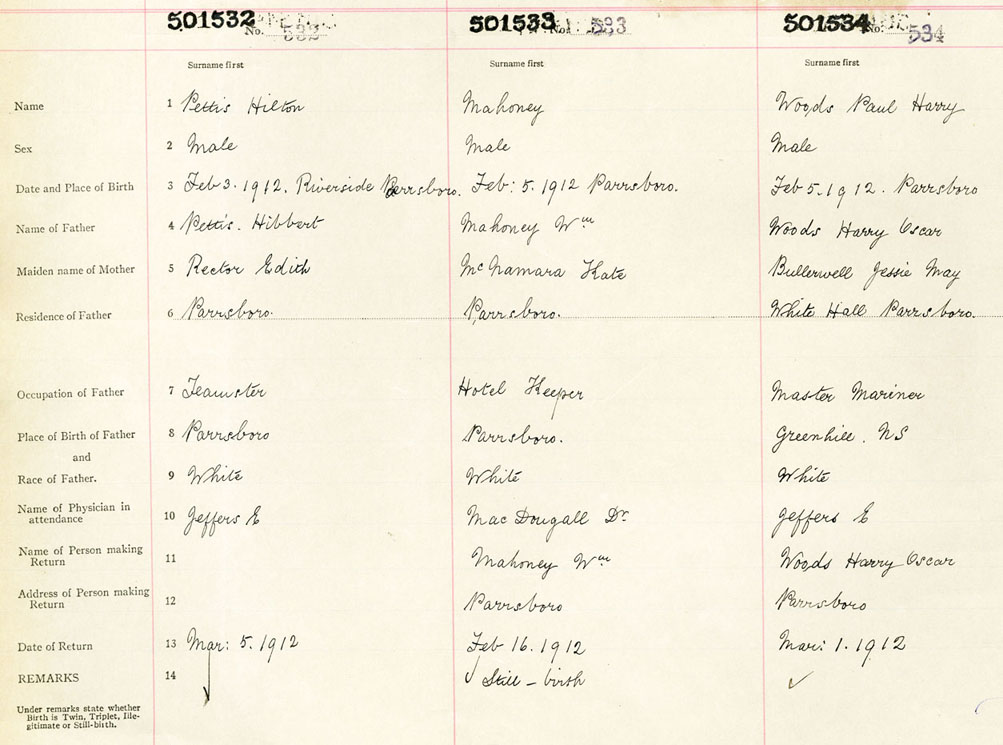 501532 No. 532 501533 No. 533 501534 No. 534
Surname first Surname first Surname first
Name 1 Pettis Hilton Mahoney Woods Paul Harry
Sex 2 Male Male Male
Date and Place of Birth 3 Feb 3. 1912. Riverside Parrsboro. Feb: 5. 1912 Parrsboro. Feb 5. 1912. Parrsboro
Name of Father 4 Pettis. Hibbert Mahoney Wm Woods Harry Oscar
Maiden name of Mother 5 Rector Edith McNamara Kate Bullerwell Jessie May
Residence of Father 6 Parrsboro. Parrsboro. White Hall Parrsboro.
Occupation of Father 7 Teamster Hotel Keeper Master Mariner
Place of Birth of Father 8 Parrsboro Parrsboro. Greenhill. NS
and
Race of Father. 9 White White White
Name of Physician in
attendance 10 Jeffers E MacDougall Dr. Jeffers E
Name of Person making
Return 11 Mahoney Wm Woods Harry Oscar
Address of Person making
Return 12 Parrsboro Parrsboro
Date of Return 13 Mar: 5. 1912 Feb 16. 1912 Mar: 1. 1912
REMARKS 14 Still - birth
Under remarks state whether
Birth is Twin, Triplet, Ille-
gitimate or Still-birth.